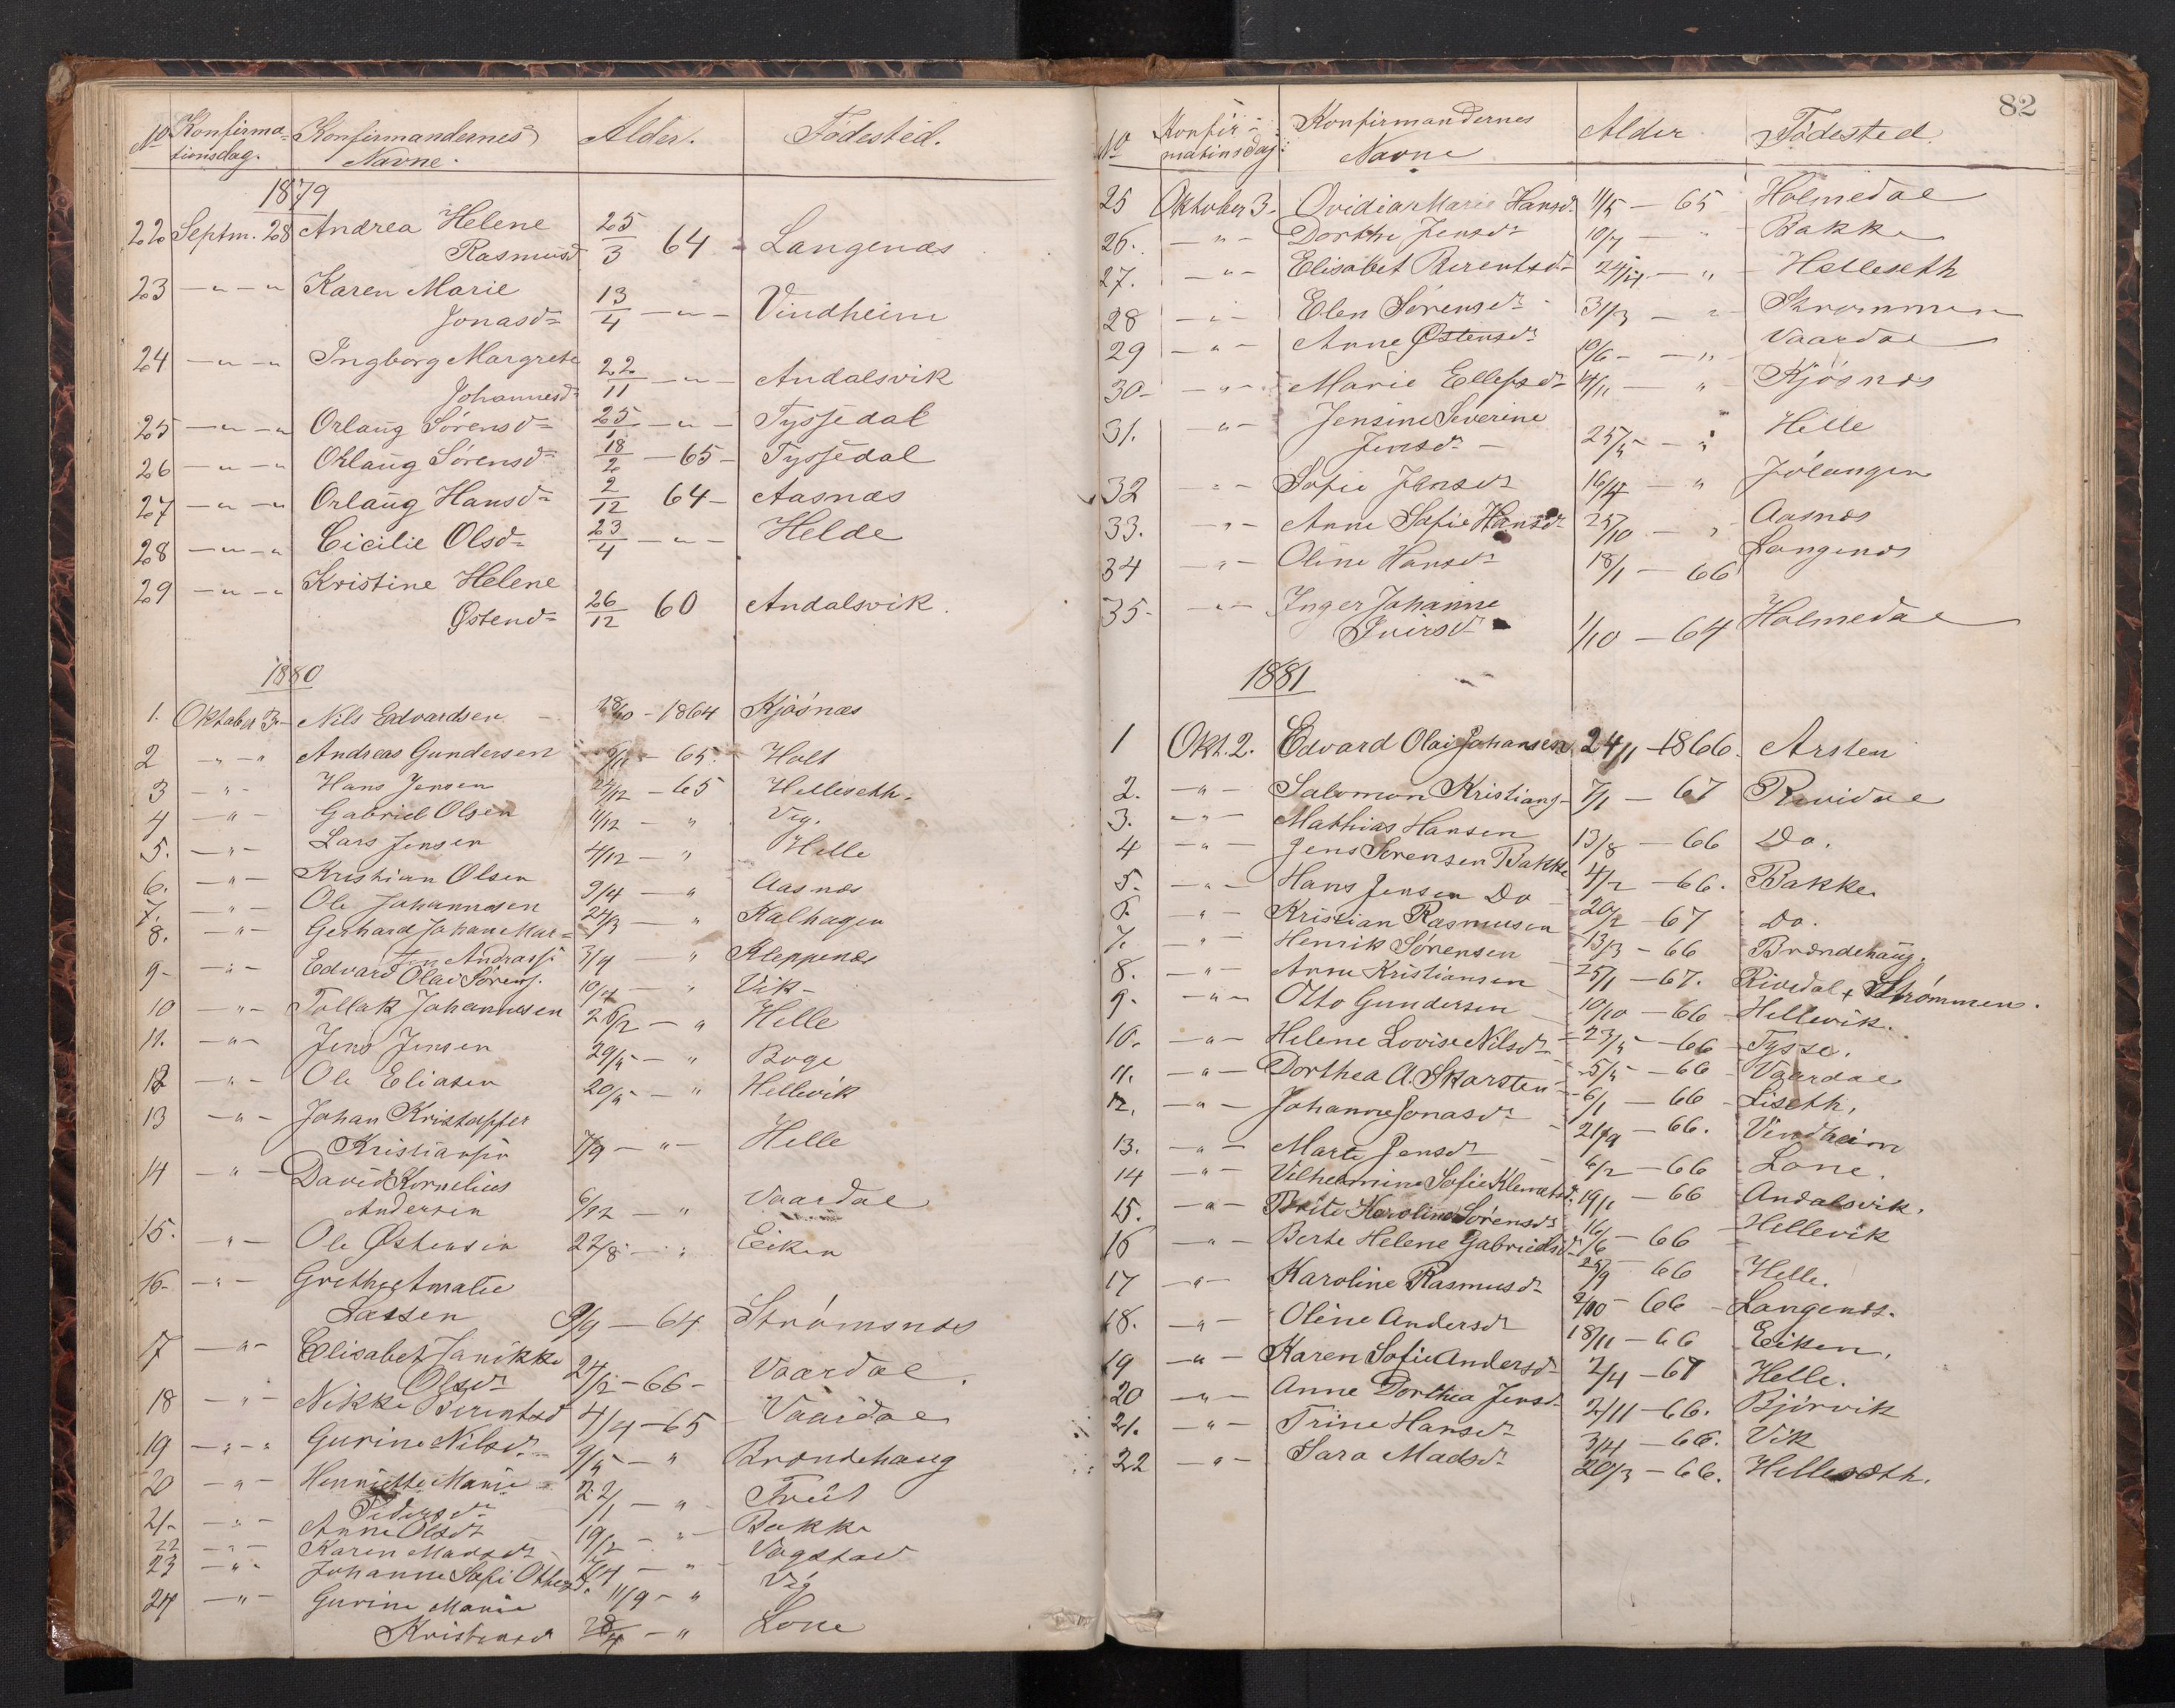 No Konfirma= Konfirmandernes Alder. Fødested.
tionsdag. Navne.
1879
22 Septm. 28 Andrea Helene
Rasmusd 25/3 64 - Langenæs
23 -"-" Karen Marie
Jonasd= 13/4 -"- Vindheim
24 -"-" Ingborg Margrete
Johannesd= 22/11 -"- Andalsvik
25 -"-" Orlaug Sørensd= 25/1 -"- Tyssedal
26 -"-" Orlaug Sørensd= 18/2 -65- Tyssedal
27 -"-" Orlaug Hansd= 2/12 64- Aasnæs
28 -"-" Cicilie Olsd= 23/4 -"- Helde
29 -"-" Kristine Helene
Østend= 26/12 60 Andalsvik.
1880
1. Oktober 3- Nils Edvardsen - 18/10 - 1864 Kjøsnæs
2 -"-" Andreas Gundersen /11 - 65. Holt
3 -"- Hans Jensen 27/12 - 65 Helleseth.
4 -"- Gabriel Olsen 11/12 - " Vig.
5. -"- Lars Jensen 4/12 - " Helle
6. -"- Kristian Olsen 9/4 - " Aasnæs
7. -"- Ole Johannesen 27/3 - " Kalhagen
8. -"- Gerhard Johan Mar=
ten Andrass 3/4 - " Kleppenæs
9- -"- Edvard Olai Sørens. 10/4 - " Vik-
10 -"- Tollak Johannesen 26/2 - " Helle
11. -"- Jens Jensen 29/5 - " Boge
12 -"- Ole Eliasen 20/5 - " Hellevik
13 -"- Johan Kristoffer
Kristiansen 7/9 - " - Helle
14 -"- David Kornelius
Andersen 6/12 - " Vaardal
15. -"- Ole Østensen 22/8 - " Eiken
16- -"- Grethe Amalie
Lassen 9/9 - 64 Strømsnæs
17 -"- Elisabet Janikke
Olsdr 24/12 - 66 - Vaardal.
18 -"- Nikke Berentsd 4/4 - 65 Vaardal
19 -"-" Gurine Nilsdr 9/5 - " Brændehaug
20 -"- Henriette Marie
Pedersdr 22/1 - "
21- -"- Anne Olsdr 19/2 - " Bakke
22 -"- Karen Madsdr - " Vagstad
23 -"- Johanne Sofi Ottesd. 11/9 - " Vig
24 -"- Gurine Marie
Kristensd 28/4 - " Lone
82
No Konfir- Konfirmandernes Alder Fødested
mationsdag. Navne
25 Oktober 3- Ovidia Marie Hansd. 11/5 - 65 Holmedal
26. -"- Dorthe Jensdr 10/7 - " Bakke
27. -"- Elisabet Berentsdr - " - Helleseth
28 -"- Elen Sørensdr 31/3 - " Strømmen
29 -"- Anne Østensdr 10/6 - - " Vaardal
30- -"- Marie Ellefsdr 14/1 - " Kjøsnæs
31. -"- Jensine Severine
Jensdr - 25/5 - " Hille
32 -"- Sofie Jensdr 16/4 - " Jølangen
33. -"- Anne Sofie Hansdr 25/10 - " Aasnæs
34 -"- Oline Hansdr 18/1 - 66 Langenæs
35- -"- Inger Johanne
Iversdr 1/10 - 64 Holmedal
1881
1 Okt. 2. Edvard Olai Johansen 24/1 -1866. Arsten
2. -"- Salomon Kristians- 7/1 - 67 Rividal
3. -"- Mathias Hansen 13/8 - 66 Do.
4 -"- Jens Sørensen Bakke 4/2 - 66. Bakke
5. -"- Hans Jensen Do 20/2 - 67 Do.
6. -"- Kristian Rasmusen 13/3 - 66 Brændehaug.
7. -"- Henrik Sørensen 25/1 - 67. Rivedal + Strømmen.
8. -"- Arne Kristiansen 10/10 - 66 - Hellevik.
9. -"- Otto Gundersen 23/5 - 66 - Tysse.
10. -"- Helene Lovise Nilsdr 5/5 - 66 - Vaardal
11. -"- Dorthea A. Skarsten 6/1 - 66 - Liseth.
12. -"- Johanne Jonasdr 21/9 - 66. Vindheim
13. -"- Marte Jensdr 6/2 - 66 Lone.
14 -"- Vilhelmine Sofie Klemetsd. 19/1 - 66 Andalsvik.
15. -"- Brite Karoline Sørensdr 16/6 - 66 Hellevik
16 -"- Berte Helene Gabrielsd 25/9 - 66 Helle.
17 -"- Karoline Rasmusdr 2/10 - 66 - Langenæs.
18. -"- Oline Andersdr 18/11 - 66 Eiken.
19 -"- Karen Sofie Andersdr 2/4 - 67 Helle.
20 -"- Anne Dorthea Jensd- 2/11 - 66. Bjørvik
21. -"- Trine Hansdr 3/4 - 66. Vik
22 -"- Sara Madsdr 20/3 - 66. Hellesæth.